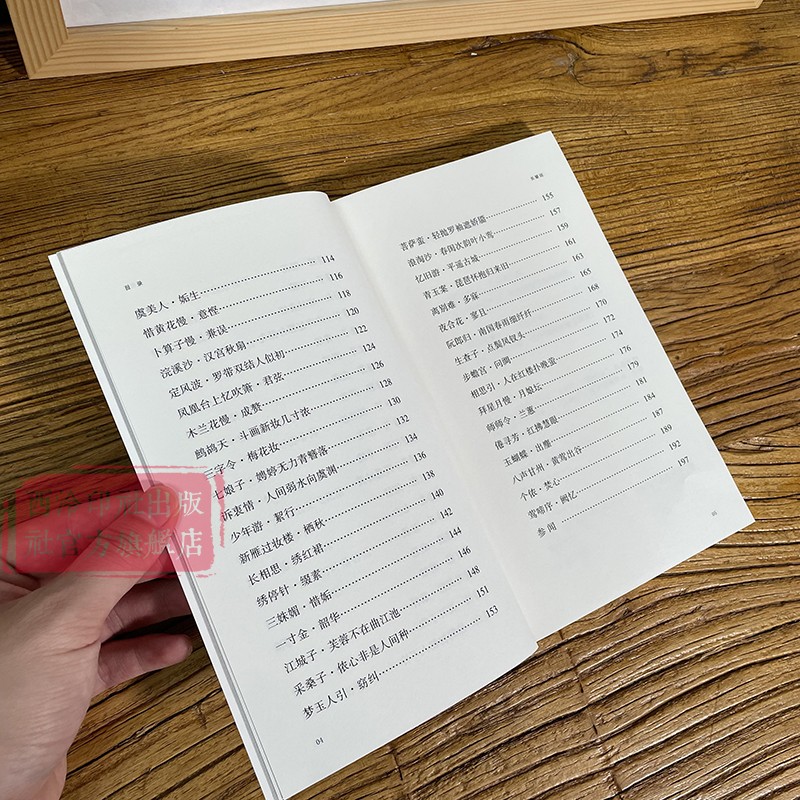 目录
虞美人·妬生 114
惜黄花慢·意悭 116
卜算子慢·兼误 118
浣溪沙·汉宫秋扇 120
定风波·罗带双结人似初 122
凤凰台上忆吹箫·君弦 124
木兰花慢·成赘 126
鹧鸪天·斗画新妆几寸浓 128
三字令·梅花妆 130
七娘子·娉婷无力青簪落 132
诉衷情·人间弱水向虞渊 134
少年游·絮行 136
新雁过妆楼·栖秋 138
长相思·绣红裙 140
绣停针·缀素 142
三姝媚·惜妬 144
一寸金·韶华 146
江城子·芙蓉不在曲江池 148
采桑子·侬心非是人间种 151
梦玉人引·窈纠 153
04
菩萨蛮·轻抛罗袖遮娇靥 155
浪淘沙·春国次韵叶小鸾 157
忆旧游·平遥古城 161
青玉案·琵琶怀抱归来旧 163
离别难·多寐 165
夜合花·寥且 168
阮郎归·南国春雨细纤纤 170
生查子·点鬓凤钗头 172
步蟾宫·问阙 174
相思引·人在红楼扑晚萤 176
拜星月慢·月娘坛 179
师师令·兰蕙 181
倦寻芳·红拂慧眼 184
玉蝴蝶·出塵 187
八声甘州·黄莺出谷 189
个侬·焚心 192
莺啼序·阙忆 197
西泠印社出版
社官方旗舰店